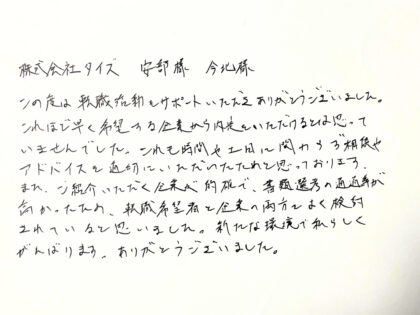 株式会社タイズ 安部様 今北様
この度は転職活動をサポートいただきありがとうございました。
これほど早く希望する企業から内定をいただけるとは思って
いませんでした。これも時間や土日に関わらず相談や
アドバイスを適切にいただいたためと思っております。
また、ご紹介いただく企業が的確で、書類選考の通過率が
高かったため、転職希望者と企業の両方をよく検討
されていると思いました。新たな環境で私らしく
がんばります。ありがとうございました。